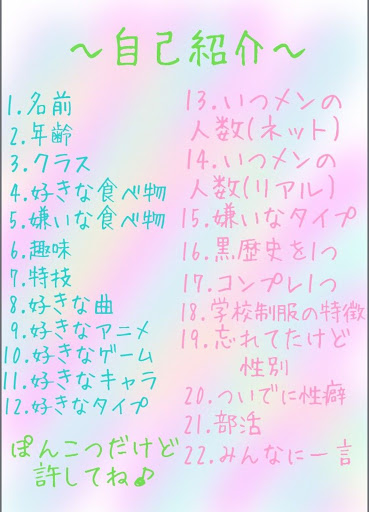 ～自己紹介～
1.名前
2.年齢
3.クラス
4.好きな食べ物
5.嫌いな食べ物
6.趣味
7.特技
8.好きな曲
9.好きなアニメ
10.好きなゲーム
11.好きなキャラ
12.好きなタイプ
ぽんこつだけど
許してね♪
13.いつメンの
人数(ネット)
14.いつメンの
人数(リアル)
15.嫌いなタイプ
16.黒歴史を1つ
17.コンプレ1つ
18.学校制服の特徴
19.忘れてたけど
性別
20.ついでに性癖
21.部活
22.みんなに一言